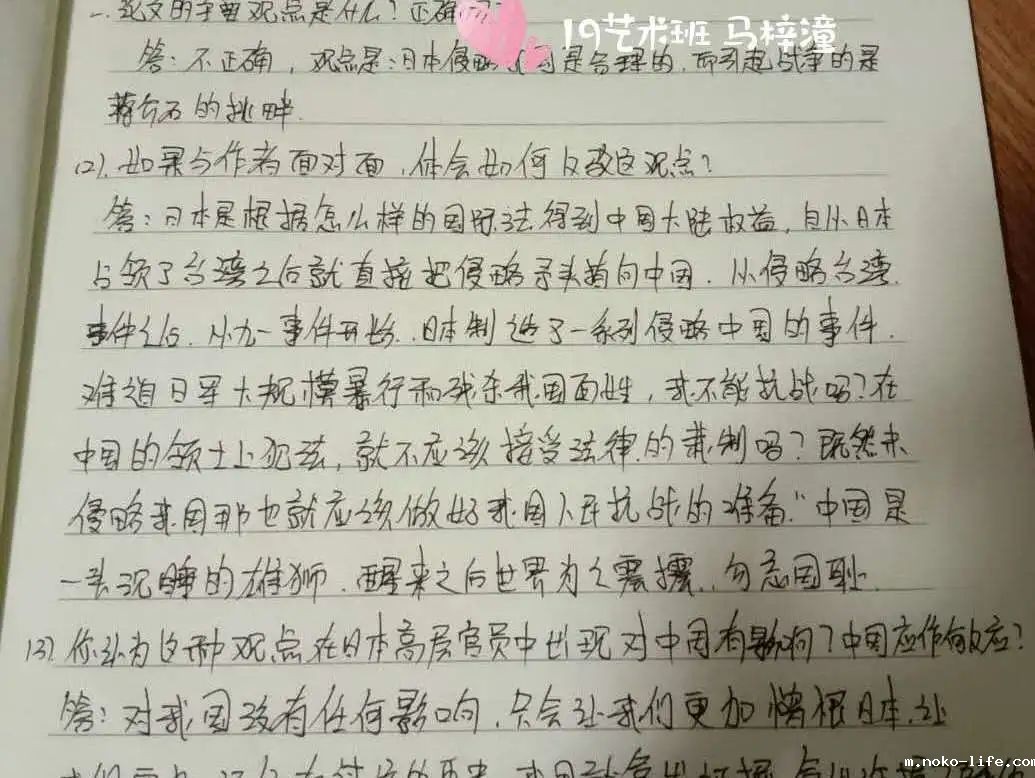 19艺术班 马梓潼
一.论文的主要观点是什么?正确吗?
答:不正确,观点是:日本侵略 是合理的,而引起战争的是
蒋介石的挑衅.
(2).如果与作者面对面,体会如何反驳这观点?
答:日本是根据怎么样的国际法得到中国大陆权益,自从日本
占领了台湾之后就直接把侵略矛头指向中国.从侵略台湾.
事件之后.从九一事件开始.日本制造了一系列侵略中国的事件.
难道日军大规模暴行和残杀我国百姓,我不能抗战吗?在
中国的领土上犯法,就不应该接受法律的裁制吗?既然来
侵略我国那也就应该做好我国人民抗战的准备."中国是
一头沉睡的雄狮.醒来之后世界为之震撼.勿忘国耻.
(3)你认为这种观点在日本高层官员中出现对中国有影响?中国应作何反应?
答:对我国没有任何影响.只会让我们更加憎恨日本.让
m.noko-life.com